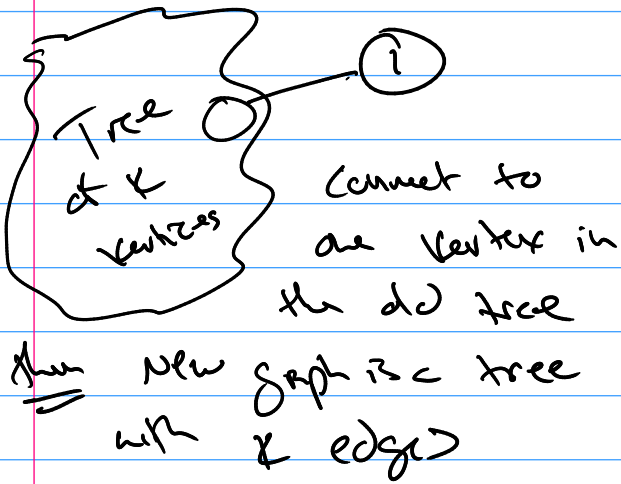 1
Tree
of k
vertices
Connect to
one vertex in
the old tree
then New graph is a tree
with k edges